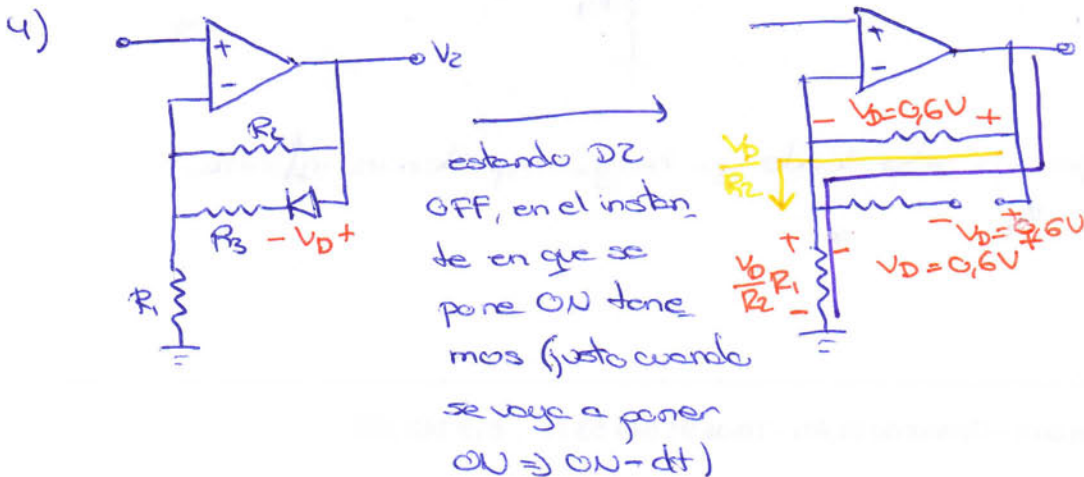 4)
+
-
V2
R2
R3
- VD +
R1
estando D2
OFF, en el instan
te en que se
pone ON tene
mos (justo cuando
se vaya a poner
ON => ON-dt)
+
-
- VD=0,6V +
VD/R2
- +
VD=0,6V
VD=0,6V
+ -
VD/R2 R1
-